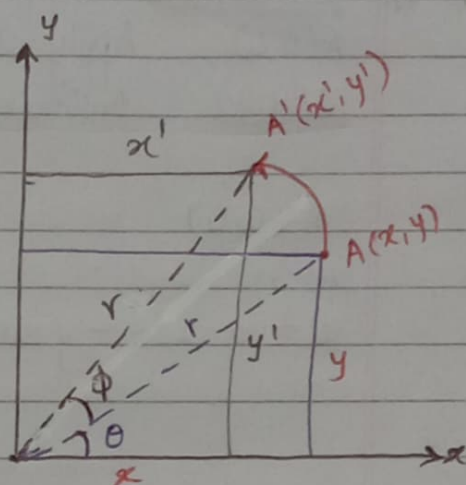 y
A'(x', y')
x'
A(x, y)
r
r
y'
y
ϕ
θ
x
x